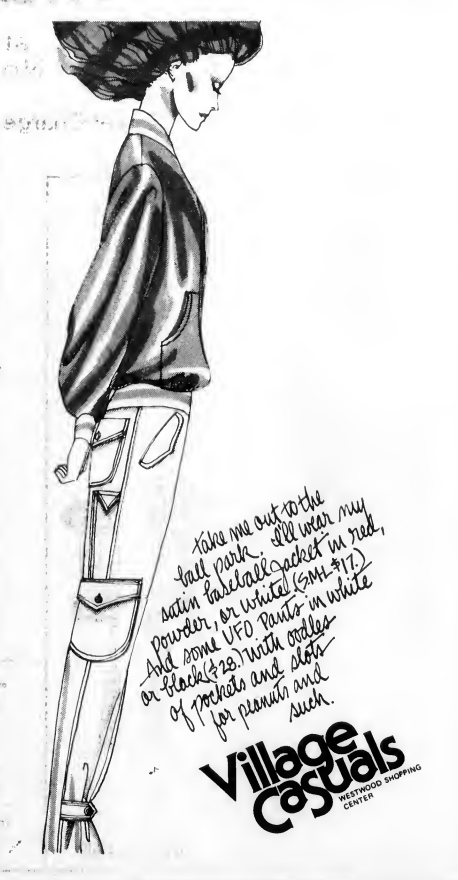 take me out to the
ball park. I'll wear my
satin baseball jacket in red,
powder, or white. (SML $17.)
And some UFO Pants in white
or black ($28.) with oodles
of pockets and slots
for peanuts and
such.
Village
Casuals
WESTWOOD SHOPPING
CENTER